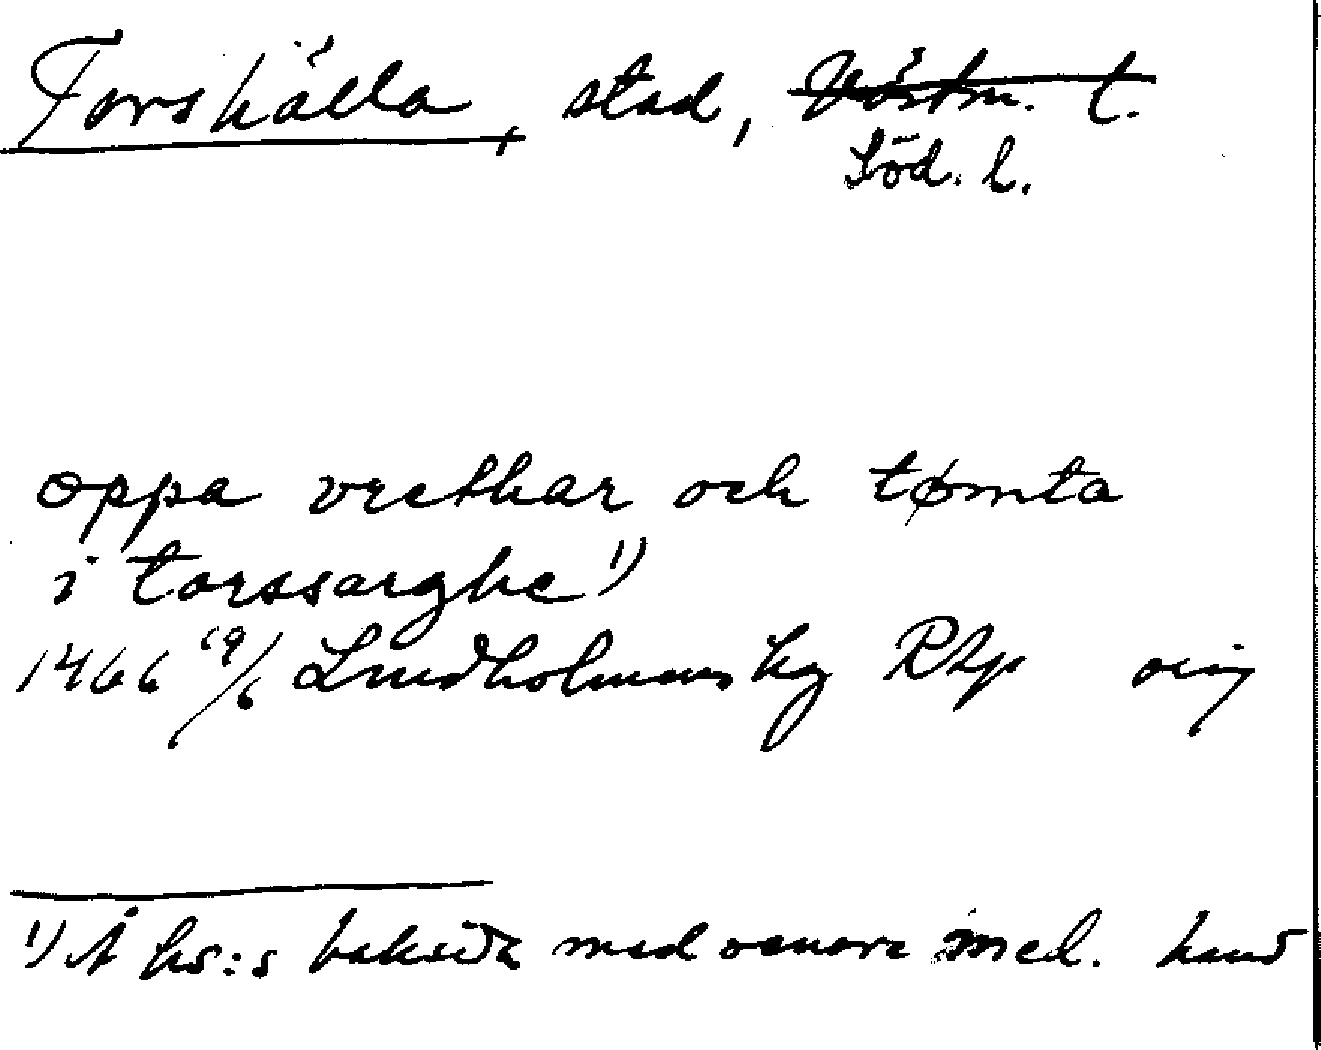 Torshälla, stad, Västm. l.
Söd. l.
oppa vrethar och tømta
i torssarghe 1)
1466 19/6 Lindholmens hg Rhp orig
1) Å hs:s baksida med senare med. hand